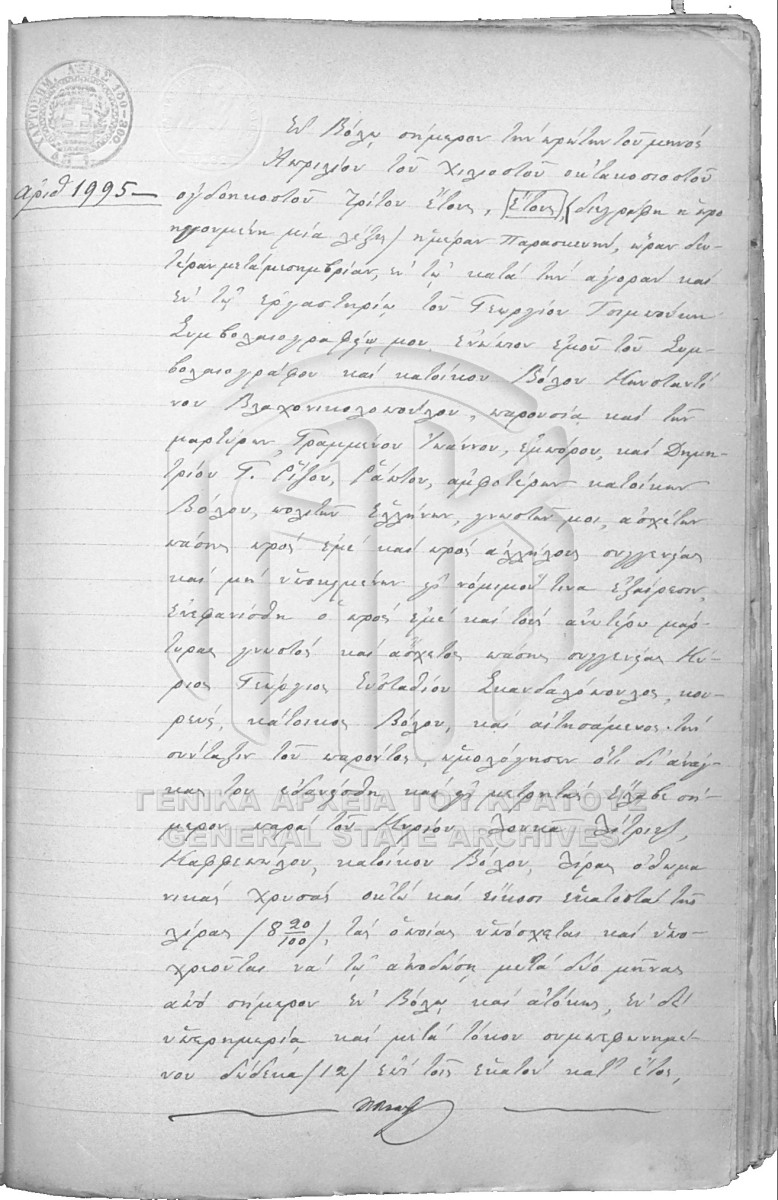 ΧΑΡΤΟΣΗΜ. ΑΞΙΑΣ 100-800
Ἐν Βόλῳ σήμερον τὴν πρώτην τοῦ μηνὸς
Ἀπριλίου τοῦ χιλιοστοῦ ὀκτακοσιοστοῦ
ἀριθ 1995
ὀγδοηκοστοῦ τρίτου ἔτους, ἔτους, (διεγράφη ἡ προ
ηγουμένη μία λέξις) ἡμέραν Παρασκευὴν, ὥραν δευ-
τέραν μετὰ μεσημβρίαν, ἐν τῷ κατὰ τὴν ἀγορὰν καὶ
ἐν τῷ ἐργαστηρίῳ τοῦ Γεωργίου
Συμβολαιογραφείῳ μου, ἐνώπιον ἐμοῦ τοῦ Συμ-
βολαιογράφου καὶ κατοίκου Βόλου Κωνσταντί
νου Βλαχονικολοπούλου, παρουσίᾳ καὶ τῶν
μαρτύρων, Γραμμένου Ἰωάννου, ἐμπόρου, καὶ Δημη-
τρίου Γ. Ῥίζου, ῥάπτου, ἀμφοτέρων κατοίκων
Βόλου, πολιτῶν Ἑλλήνων, γνωστῶν μοι, ἀσχέτων
πάσης πρὸς ἐμὲ καὶ πρὸς ἀλλήλους συγγενείας
καὶ μὴ ὑποκειμένων εἰς νόμιμόν τινα ἐξαίρεσιν,
ἐνεφανίσθη ὁ πρὸς ἐμὲ καὶ τοὺς ἀνωτέρω μάρ-
τυρας γνωστὸς καὶ ἄσχετος πάσης συγγενείας Κύ-
ριος Γεώργιος Εὐσταθίου Σκανδαλόπουλος, κου-
ρεύς, κάτοικος Βόλου, καὶ αἰτησάμενος τὴν
σύνταξιν τοῦ παρόντος ὡμολόγησεν ὅτι δι' ἀνάγ-
κας του ἐδανείσθη καὶ εἰς μετρητὰ ἔλαβε σή-
μερον παρὰ τοῦ Κυρίου Λουκᾶ
Καφφεπώλου, κατοίκου Βόλου, λίρας ὀθωμα
νικὰς χρυσᾶς ὀκτὼ καὶ εἴκοσι ἑκατοστὰ τῆς
λίρας (8 20/100), τὰς ὁποίας ὑπόσχεται καὶ ὑπο-
χρεοῦται νὰ τῷ ἀποδώσῃ μετὰ δύο μῆνας
ἀπὸ σήμερον ἐν Βόλῳ καὶ ἀτόκως, ἐν δὲ
ὑπερημερίᾳ καὶ μετὰ τόκου συμπεφωνημέ-
νου δώδεκα (12) ἐπὶ τοῖς ἑκατὸν κατ' ἔτος,
ΓΕΝΙΚΑ ΑΡΧΕΙΑ ΤΟΥ ΚΡΑΤΟΥΣ
GENERAL STATE ARCHIVES